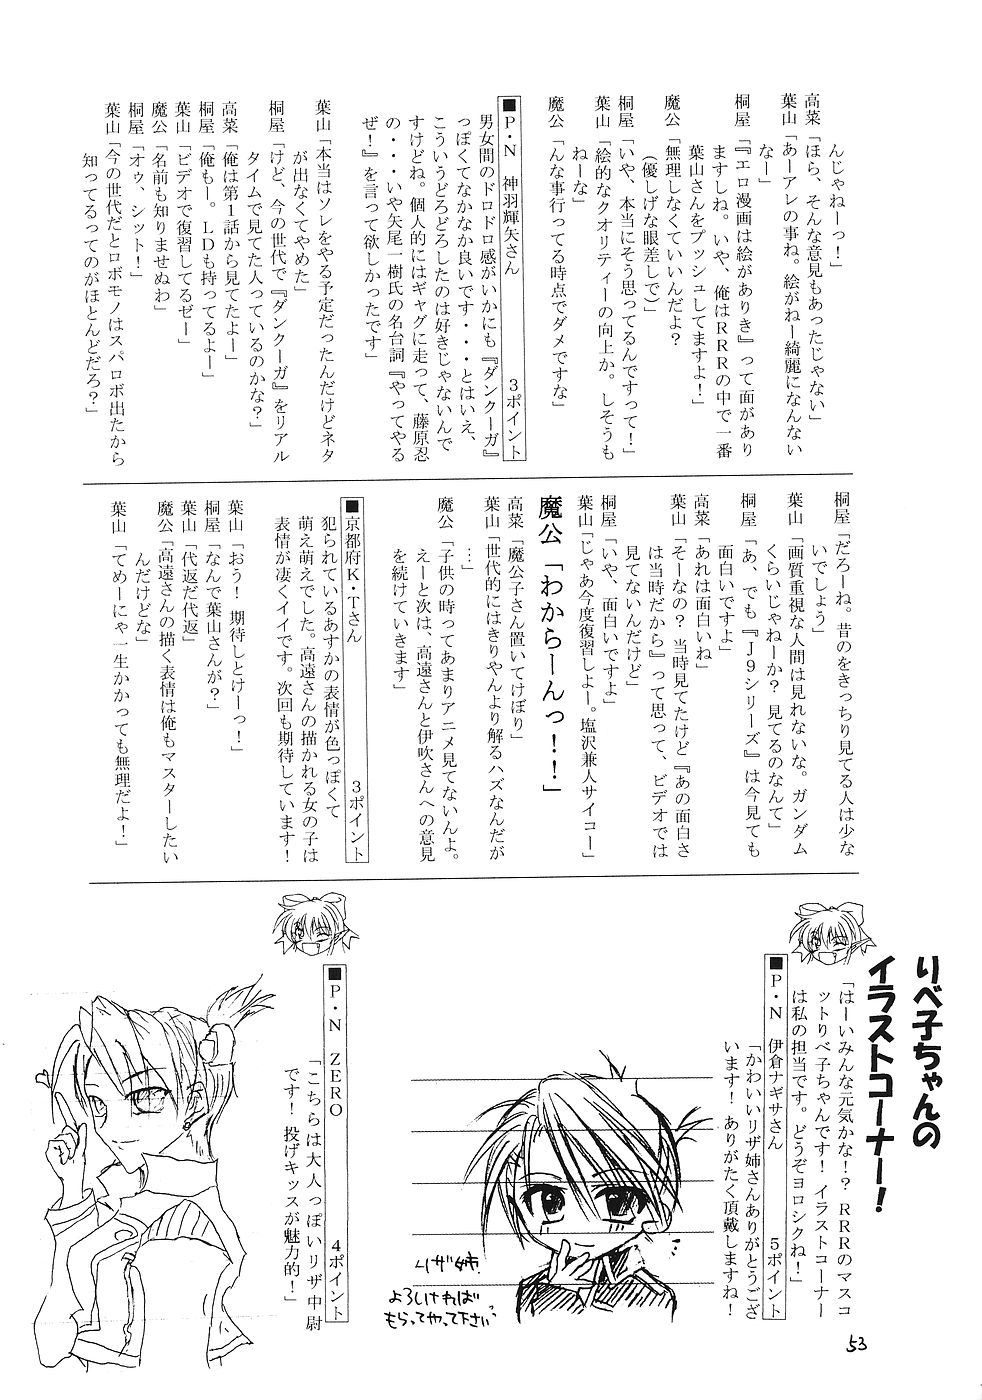 んじゃねーっ!」
高菜「ほら、そんな意見もあったじゃない」
葉山「あーアレの事ね。絵がねー綺麗になんない
なー」
桐屋「『エロ漫画は絵がありき』って面があり
ますしね。いや、俺はRRRの中で一番
葉山さんをプッシュしてますよ!」
魔公「無理しなくていいんだよ?
(優しげな眼差しで)」
桐屋「いや、本当にそう思ってるんですって!」
葉山「絵的なクオリティーの向上か。しそうも
ねーな」
魔公「んな事行ってる時点でダメですな」
■P・N 神羽輝矢さん 3ポイント
男女間のドロドロ感がいかにも『ダンクーガ』
っぽくてなかなか良いです・・・とはいえ、
こういうどろどろしたのは好きじゃないんで
すけどね。個人的にはギャグに走って、藤原忍
の・・・いや矢尾一樹氏の名台詞『やってやる
ぜ!』を言って欲しかったです」
葉山「本当はソレをやる予定だったんだけどネタ
が出なくてやめた」
桐屋「けど、今の世代で『ダンクーガ』をリアル
タイムで見てた人っているのかな?」
高菜「俺は第1話から見てたよー」
桐屋「俺もー。LDも持ってるよー」
葉山「ビデオで復習してるぜー」
魔公「名前も知りませぬわ」
桐屋「オゥ、シット!」
葉山「今の世代だとロボモノはスパロボ出たから
知ってるってのがほとんどだろ?」
桐屋「だろーね。昔のをきっちり見てる人は少な
いでしょう」
葉山「画質重視な人間は見れないな。ガンダム
くらいじゃねーか?見てるのなんて」
桐屋「あ、でも『J9シリーズ』は今見ても
面白いですよ」
高菜「あれは面白いね」
葉山「そーなの?当時見てたけど『あの面白さ
は当時だから』って思って、ビデオでは
見てないんだけど」
桐屋「いや、面白いですよ」
葉山「じゃあ今度復習しよー。塩沢兼人サイコー」
魔公「わからーんっ!!」
高菜「魔公子さん置いてけぼり」
葉山「世代的にはきりやんより解るハズなんだが
…」
魔公「子供の時ってあまりアニメ見てないんよ。
えーと次は、高遠さんと伊吹さんへの意見
を続けていきます」
■京都府K・Tさん 3ポイント
犯られているあすかの表情が色っぽくて
萌え萌えでした。高遠さんの描かれる女の子は
表情が凄くイイです。次回も期待しています!
葉山「おう!期待しとけーっ!」
桐屋「なんで葉山さんが?」
葉山「代返だ代返」
魔公「高遠さんの描く表情は俺もマスターしたい
んだけどな」
葉山「てめーにゃ一生かかっても無理だよ!」
りべ子ちゃんの
イラストコーナー!
「はーいみんな元気かな!?RRRのマスコ
ットりべ子ちゃんです!イラストコーナー
は私の担当です。どうぞヨロシクね!」
■P・N 伊倉ナギサさん 5ポイント
「かわいいリザ姉さんありがとうござ
います!ありがたく頂戴しますね!
リザ姉。
よろしければ
もらってやって下さいっ
■P・N ZERO 4ポイント
「こちらは大人っぽいリザ中尉
です!投げキッスが魅力的!」
53